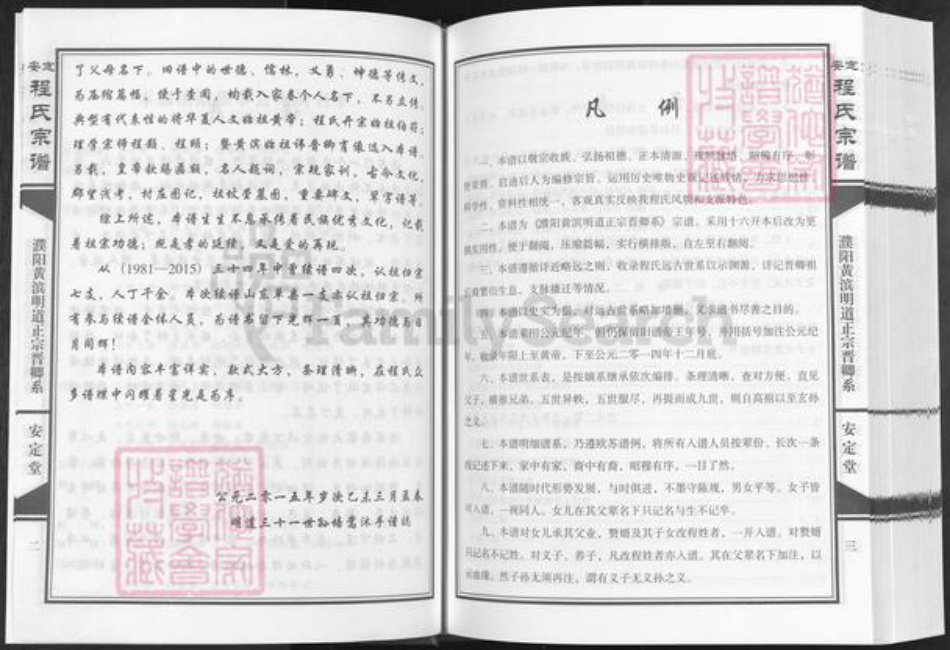 安定
程氏宗谱
濮阳黄滨明道正宗晋卿系
安定堂
二
了父母名下。旧谱中的世德、儒林、义勇、坤德等传文,
为压缩篇幅,便于查阅,均载入家卷个人名下,不另立传。
典型有代表性的将华夏人文始祖黄帝;程氏开宗始祖伯符;
理学宗师程颢、程颐;暨黄滨始祖讳晋卿肖像选入本谱。
另载,皇帝敕赐匾额,名人题词,宗规家训,古今文化,
郡望浅考,村庄图记,祖坟茔墓图,重要碑文,辈字谱等。
综上所述,本谱生生不息承传着民族优秀文化,记载
着祖宗功德;既是孝的延续,又是爱的再现。
从(1981—2015)三十四年中曾续谱四次,认祖归宗
七支,人丁千余。本次续谱山东单县一支亦认祖归宗。所
有参与续谱全体人员,为谱书留下光辉一页,其功德与日
月同辉!
本谱内容丰富详实,款式大方,条理清晰,在程氏众
多谱牒中闪耀着星光是为序。
公元二零一五年岁次乙未三月孟春
明道三十一世孙
沐手谨志
FamilySearch
凡 例
一、本谱以敬宗收族、弘扬祖德、正本清源、
启迪后人为编修宗旨。运用历史唯物史观记述族情,力求思想性、
科学性、资料性相统一,客观真实反映我程氏风貌和支派特色。
二、本谱为《濮阳黄滨明道正宗晋卿系》宗谱。采用十六开本后改为更
具实用性,便于翻阅,压缩篇幅,实行横排版,自左至右翻阅。
三、本谱遵循详近略远之则,收录程氏远古世系以示渊源,详记晋卿祖
后裔繁衍生息、支脉播迁等情况。
四、本谱以史实为据,对远古世系略加增删,又求谱书尽善之目的。
五、本谱采用公元纪年,但仍保留旧谱帝王年号,并用括号加注公元纪
年。收录年限上至黄帝,下至公元二零一四年十二月底。
六、本谱世系表,是按嫡系继承依次编排。条理清晰,查对方便。直见
父子,横推兄弟。五世异帙,五世服尽,再提而成九世,则自高祖以至玄孙
之义。
七、本谱明细谱系,乃遵欧苏谱例,将所有入谱人员按辈份、长次一条
线记述下来,家中有家,裔中有裔,昭穆有序,一目了然。
八、本谱随时代形势发展,与时俱进,不墨守陈规,男女平等。女子皆
可入谱,一视同人。女儿在其父辈名下只记名与生不记卒。
九、本谱对女儿承其父业、赘婿及其子女改程姓者,一并入谱。对赘婿
只记名不记姓。对义子、养子,凡改程姓者亦入谱。其在父辈名下加注,以
示血缘。然子孙无须再注,谓有义子无义孙之义。
安定
程氏宗谱
濮阳黄滨明道正宗晋卿系
安定堂
三